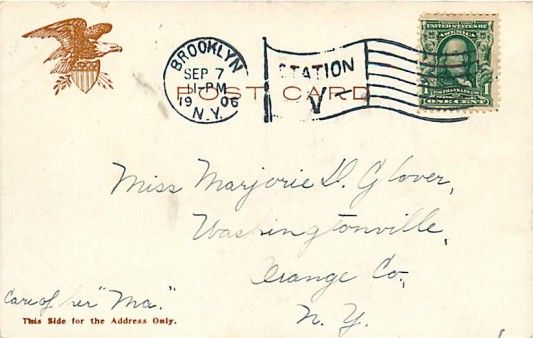 BROOKLYN
SEP 7
11-PM
19 06
N.Y.
STATION
V
POST CARD
UNITED STATES OF
AMERICA
FRANKLIN
1 ONE CENT 1
Miss Marjorie D. Glover,
Washingtonville,
Orange Co,
N. Y.
Care of her "Ma."
This Side for the Address Only.